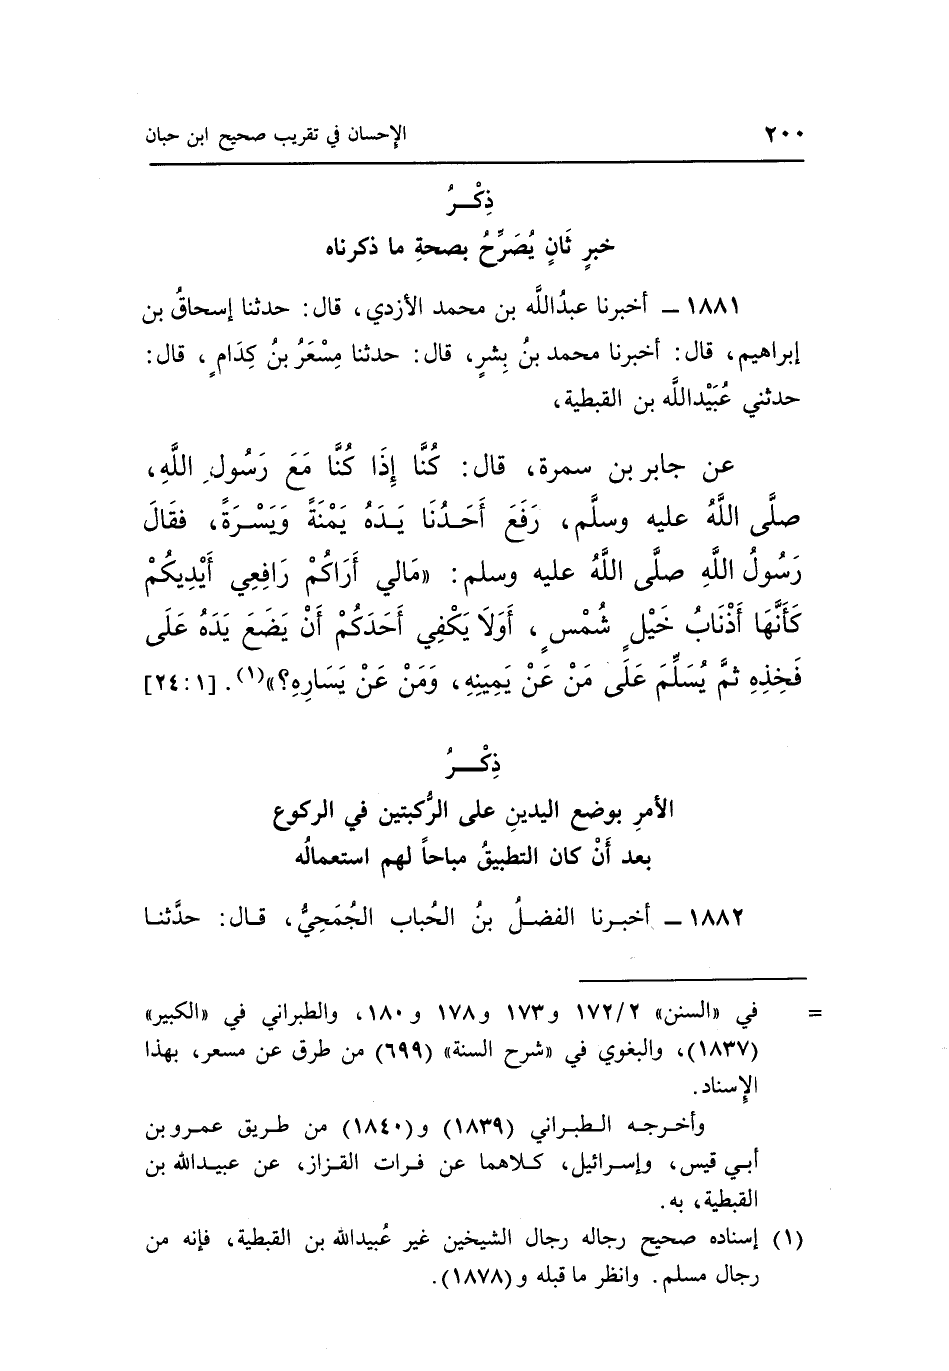 ٢٠٠ الإحسان في تقريب صحيح ابن حبان
ذِكْـــرُ
خبرٍ ثَانٍ يُصَرِّحُ بصحةِ ما ذكرناه
١٨٨١ – أخبرنا عبدُاللَّه بن محمد الأزدي، قال: حدثنا إسحاقُ بن
إبراهيم، قال: أخبرنا محمد بنُ بِشرٍ، قال: حدثنا مِسْعَرُ بنُ كِدَامٍ، قال:
حدثني عُبَيْداللَّه بن القبطية،
عن جابر بن سمرة، قال: كُنَّا إِذَا كُنَّا مَعَ رَسُولِ اللَّهِ،
صلَّى اللَّهُ عليه وسلَّم، رَفَعَ أَحَدُنَا يَدَهُ يَمْنَةً وَيَسْرَةً، فقَالَ
رَسُولُ اللَّهِ صلَّى اللَّهُ عليه وسلم: «مَالي أَرَاكُمْ رَافِعِي أَيْدِيكُمْ
كَأَنَّهَا أَذْنَابُ خَيْلٍ شُمْسٍ، أَوَلَا يَكْفِي أَحَدَكُمْ أَنْ يَضَعَ يَدَهُ عَلَى
فَخِذِهِ ثمَّ يُسَلِّمَ عَلَى مَنْ عَنْ يَمِينِهِ، وَمَنْ عَنْ يَسَارِهِ؟»(١). [٢٤:١]
ذِكْـــرُ
الأمرِ بوضع اليدينِ على الرُّكبتين في الركوع
بعد أَنْ كان التطبيقُ مباحاً لهم استعمالُه
١٨٨٢ – أخبرنا الفضلُ بنُ الحُباب الجُمَحِيُّ، قال: حدَّثنا
= في «السنن» ١٧٢/٢ و١٧٣ و١٧٨ و١٨٠، والطبراني في «الكبير»
(١٨٣٧)، والبغوي في «شرح السنة» (٦٩٩) من طرق عن مسعر، بهذا
الإسناد.
وأخرجه الطبراني (١٨٣٩) و(١٨٤٠) من طريق عمرو بن
أبي قيس، وإسرائيل، كلاهما عن فرات القزاز، عن عبيدالله بن
القبطية، به.
(١) إسناده صحيح رجاله رجال الشيخين غير عُبيدالله بن القبطية، فإنه من
رجال مسلم. وانظر ما قبله و(١٨٧٨).